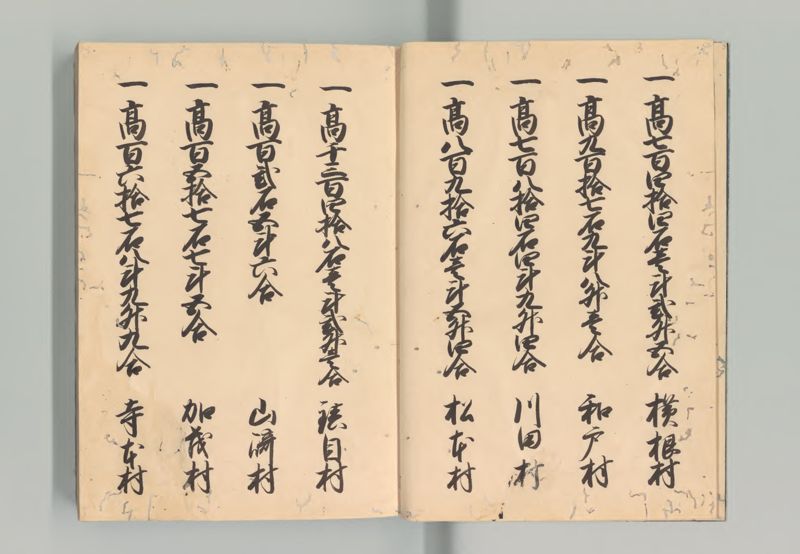 一高七百四拾四石壱斗弐升五合 横根村
一高九百拾七石九斗八升壱合 和戸村
一高七百八拾四石四斗九升四合 川田村
一高八百九拾六石壱斗五升四合 松本村
一高千三百四拾八石壱斗弐升壱合 鎮目村
一高百弐石五斗六合 山崎村
一高百五拾七石七斗五合 加茂村
一高百六拾七石八斗九升九合 寺本村